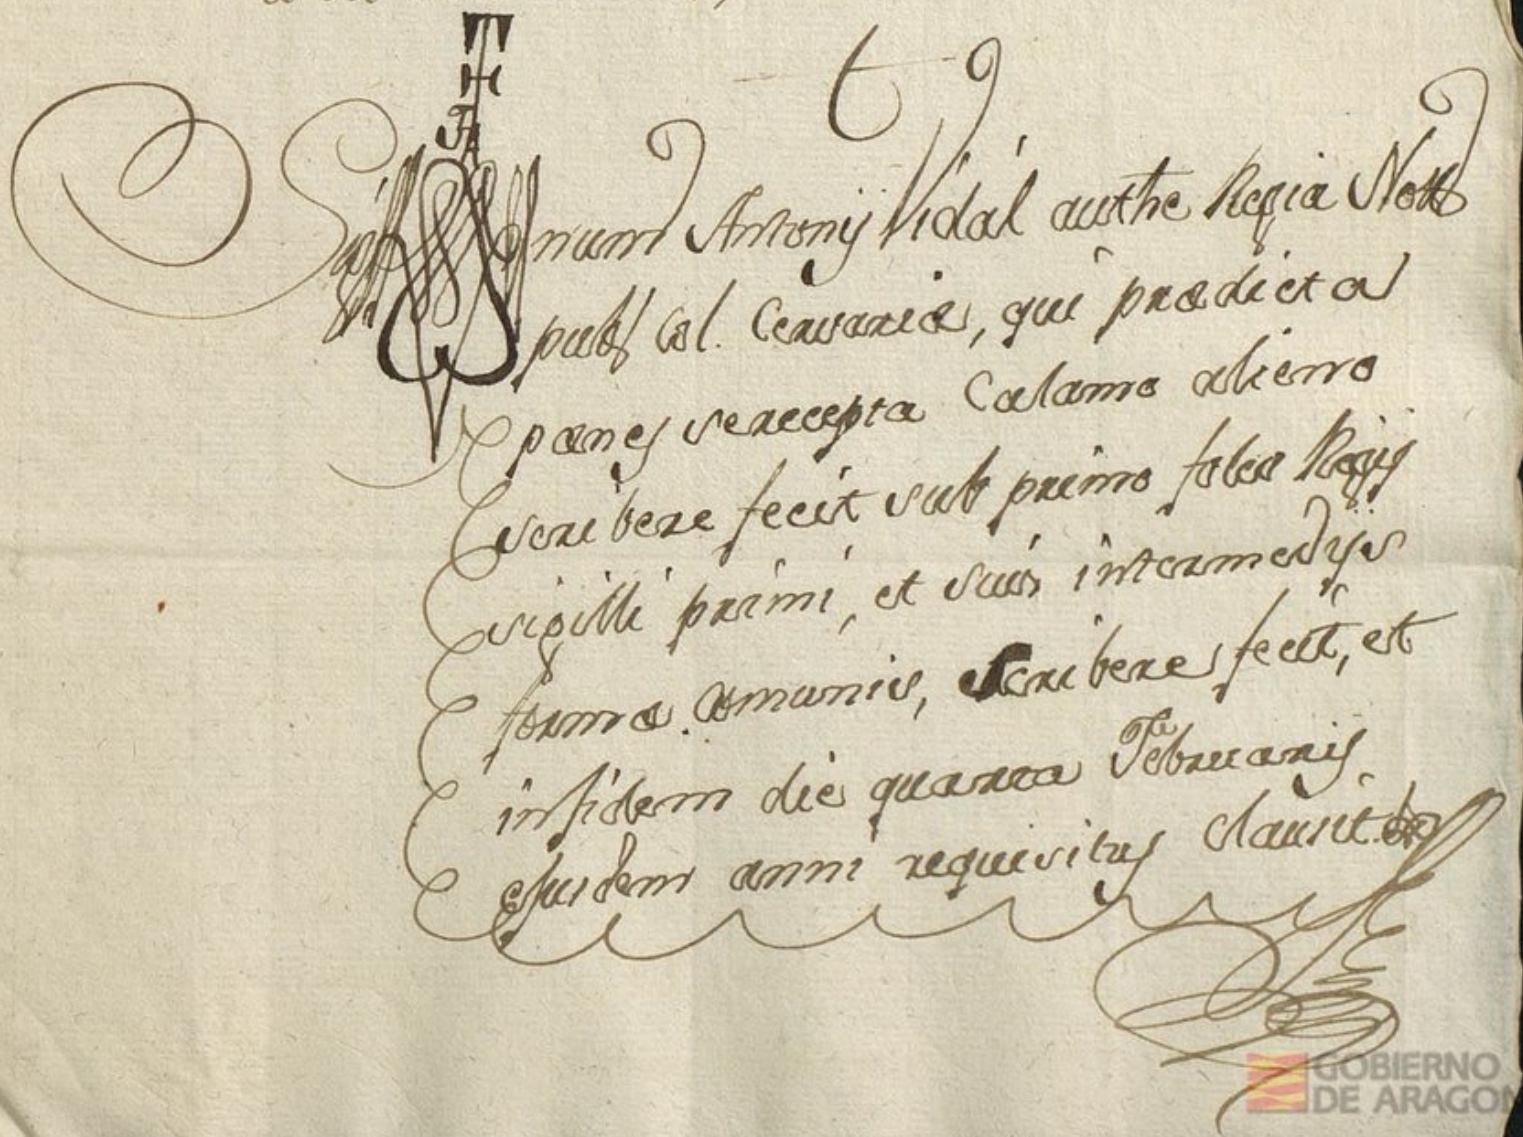 Sig num Antonij Vidál authe Regia Nott
publ Col. Cervariæ, qui prædicta
pænes se recepta Calamo alieno
scribere fecit sub primo folio Regij
sigilli primi, et suis intermedijs
formæ comunis, scribere fecit, et
in fidem die quarta Februarij
ejusdem anni requisitus clausit.
GOBIERNO
DE ARAGON